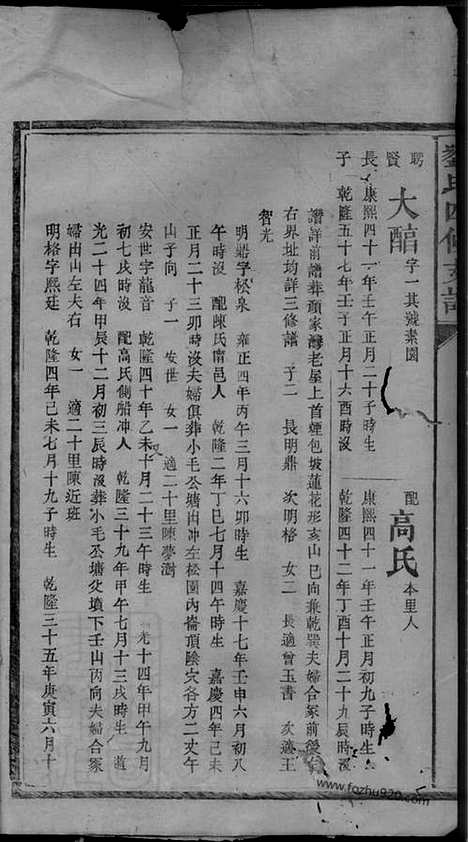 劉氏四修支譜
聘賢長子
大醕字一其號素園
康熙四十一年壬午正月二十子時生
乾隆五十七年壬子正月十六酉時沒
配高氏本里人
康熙四十一年壬午正月初九子時生
乾隆四十二年丁酉十月二十九辰時沒
讚詳前譜葬顏家灣老屋上首煙包坡蓮花形亥山巳向兼乾巽夫婦合冢前後左
右界址均詳三修譜 子二 長明鼎 次明格 女二 長適曾玉書 次適王
智光
明鼎字松泉 雍正四年丙午三月十六卯時生 嘉慶十七年壬申六月初八
午時沒 配陳氏南邑人 乾隆二年丁巳七月十四午時生 嘉慶四年己未
正月二十三卯時沒夫婦俱葬小毛坌塘由冲左松園內崙頂陰穴各方二丈午
山子向 子一 安世 女一 適二十里陳夢澍
安世字龍音 乾隆四十年乙未十月二十三午時生 光十四年甲午九月
初七戌時沒 配高氏側船冲人 乾隆三十九年甲午七月十三戌時生 道
光二十四年甲辰十二月初三辰時沒葬小毛坌塘父墳下壬山丙向夫婦合冢
婦由山左夫右 女一 適二十里陳近班
明格字熙廷 乾隆四年己未七月十九子時生 乾隆三十五年庚寅六月十
www.fozhu920.com